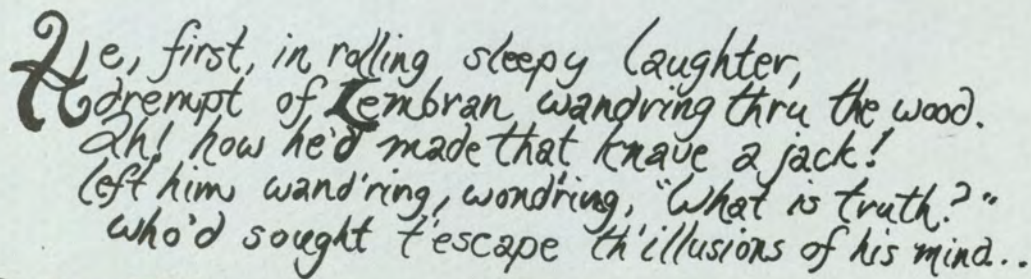 He, first, in rolling sleepy laughter,
drempt of Lembran wandring thru the wood.
Ah! how he'd made that knave a jack!
left him wand'ring, wond'ring, "What is truth?"
who'd sought t'escape th'illusions of his mind..